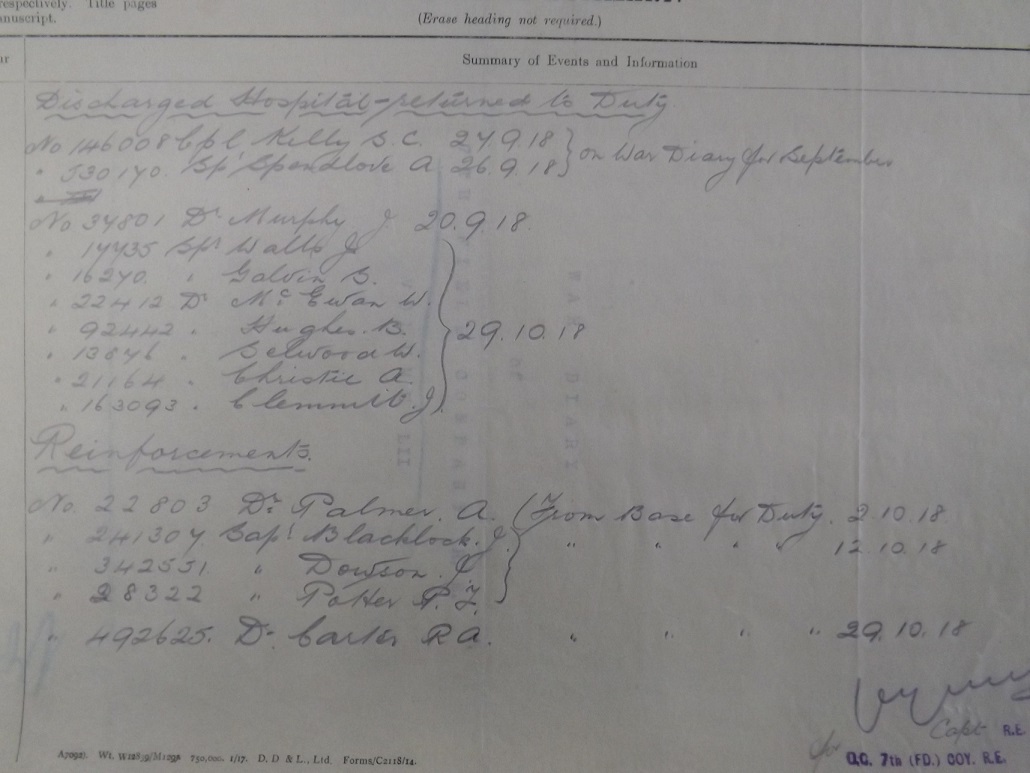 respectively. Title pages
manuscript.
(Erase heading not required.)
Summary of Events and Information
Discharged Hospital - returned to Duty
No 146008 Cpl Kelly S.C. 27.9.18 } on War Diary for September
" 530170. Spr Spendlove A 26.9.18 }
No 34801 Dr Murphy J 20.9.18.
" 17735 Spr Watts J
" 16270. " Galvin S.
" 22412 Dr McEwan W.
" 92442 " Hughes. B. } 29.10.18
" 13876 " Selwood W.
" 21164 " Christie A.
" 163093 " Clemmitt J.
Reinforcements.
No. 22803 Dr Palmer. A. (From Base for Duty. 2.10.18.
" 241307. Sapr Blacklock. J. " " " " 12.10.18
" 342551 " Dowson. J.
" 28322 " Potter P. F.
" 492625. Dr Carter R.A. " " " " 29.10.18
Capt R.E.
for O.C. 7th (FD.) COY. R.E.
A7092). Wt. W12839/M1298 750,000. 1/17. D. D & L., Ltd. Forms/C2118/14.